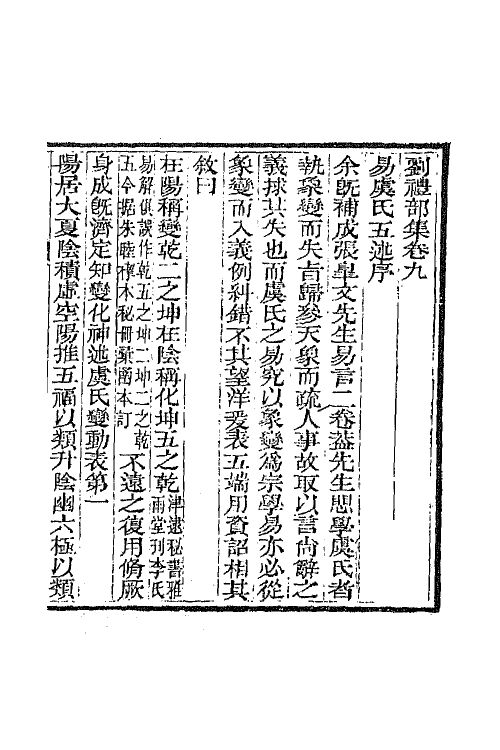 劉禮部集卷九
易虞氏五述序
余旣補成張皐文先生易言二卷葢先生思學虞氏者
執象變而失吉歸參天象而疏人事故取以言尙辭之
義捄其失也而虞氏之易究以象變爲宗學易亦必從
象變而入義例糾錯不其望洋爰表五端用資詔相其
敘曰
在陽稱變乾二之坤在陰稱化坤五之乾津逮秘書雅雨堂刋李氏
易解俱誤作乾五之坤二坤二之乾五今据朱睦㮮本秘冊彙函本訂不遠之復用脩厥
身成旣濟定知變化神述虞氏變動表第一
陽居大夏陰積虛空陽推五福以類升陰幽六極以類